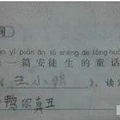 yì piān ān tú shēng de tóng huà
一篇安徒生的童话
王小, 读
鸭你真丑